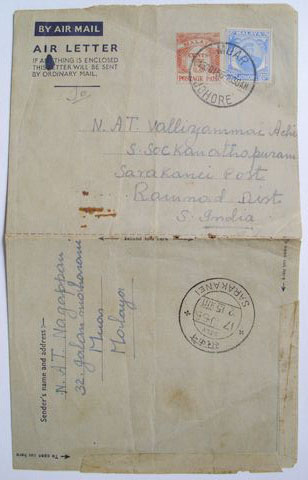 BY AIR MAIL
AIR LETTER
IF ANYTHING IS ENCLOSED
THIS LETTER WILL BE SENT
BY ORDINARY MAIL.
MALAYA
MALAYA
POSTAGE
MUAR
JOHORE
To
N. AT Valliyammai Achi
S. Sockanathapuram
Sarakanei Post
Ramnad Dist
S. India
SARAKANEI
17
Sender's name and address:—
N. A.T. Nagappan
32.
Muar
Malaya
To open cut here